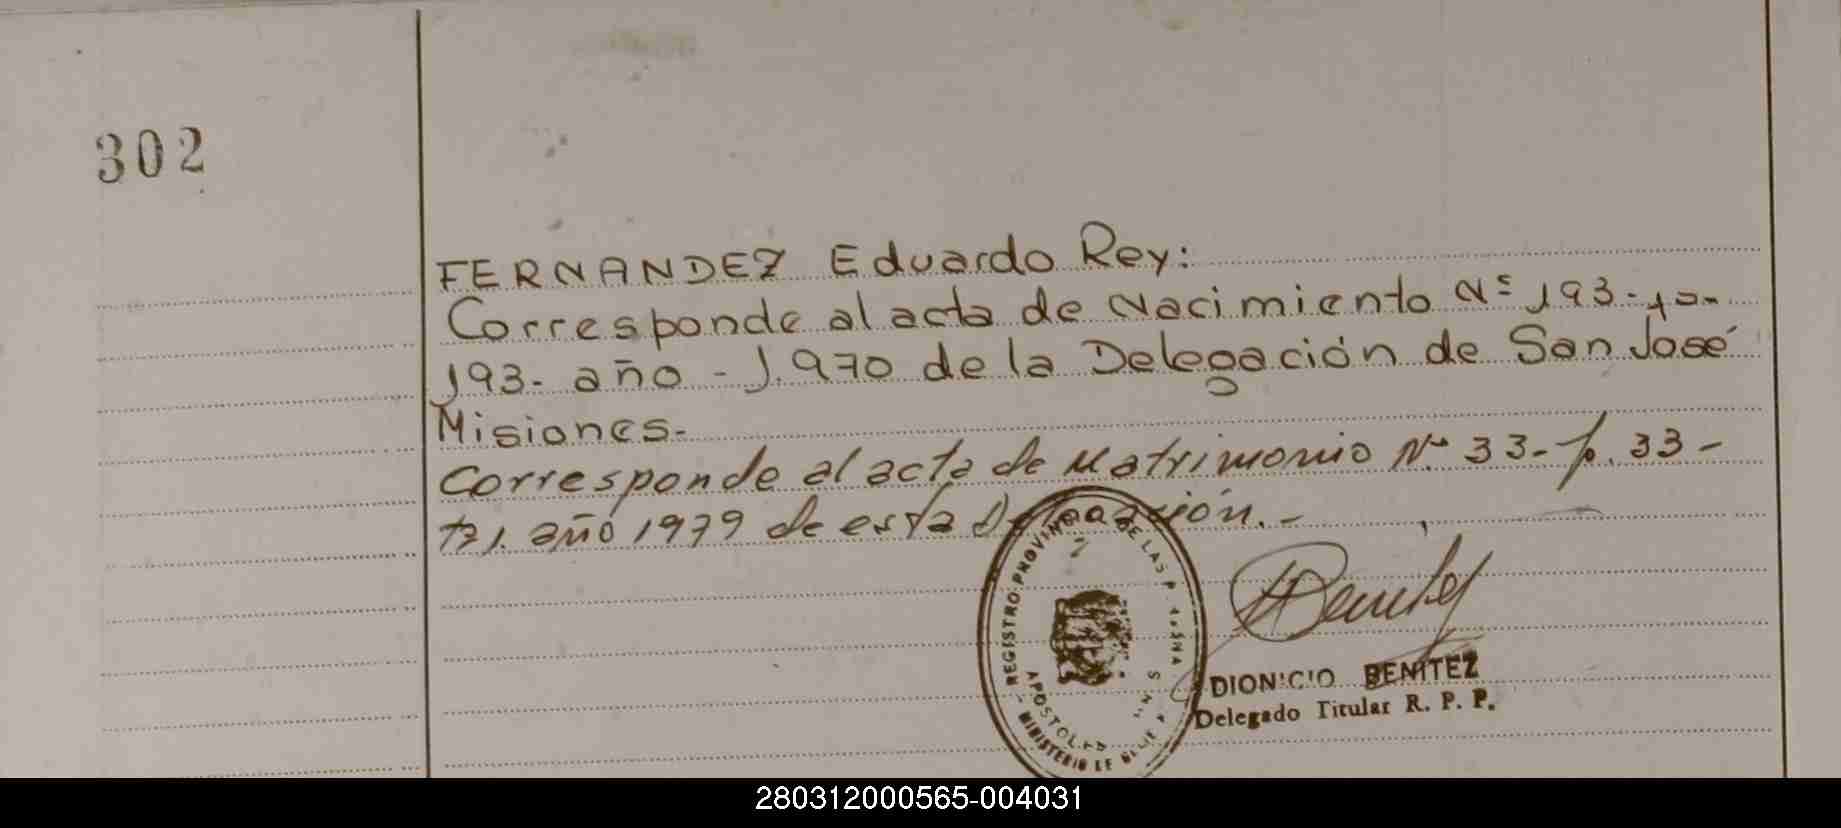 302
FERNANDEZ Eduardo Rey:
Corresponde al acta de Nacimiento Nº 193-
193- año - 1.970 de la Delegación de San José
Misiones.-
Corresponde al acta de Matrimonio Nº 33- fº. 33-
año 1979 de esta Delegación.-
REGISTRO PROVINCIAL DE LAS PERSONAS
APOSTOLES
MINISTERIO DE
Benitez
DIONICIO BENITEZ
Delegado Titular R. P. P.
280312000565-004031